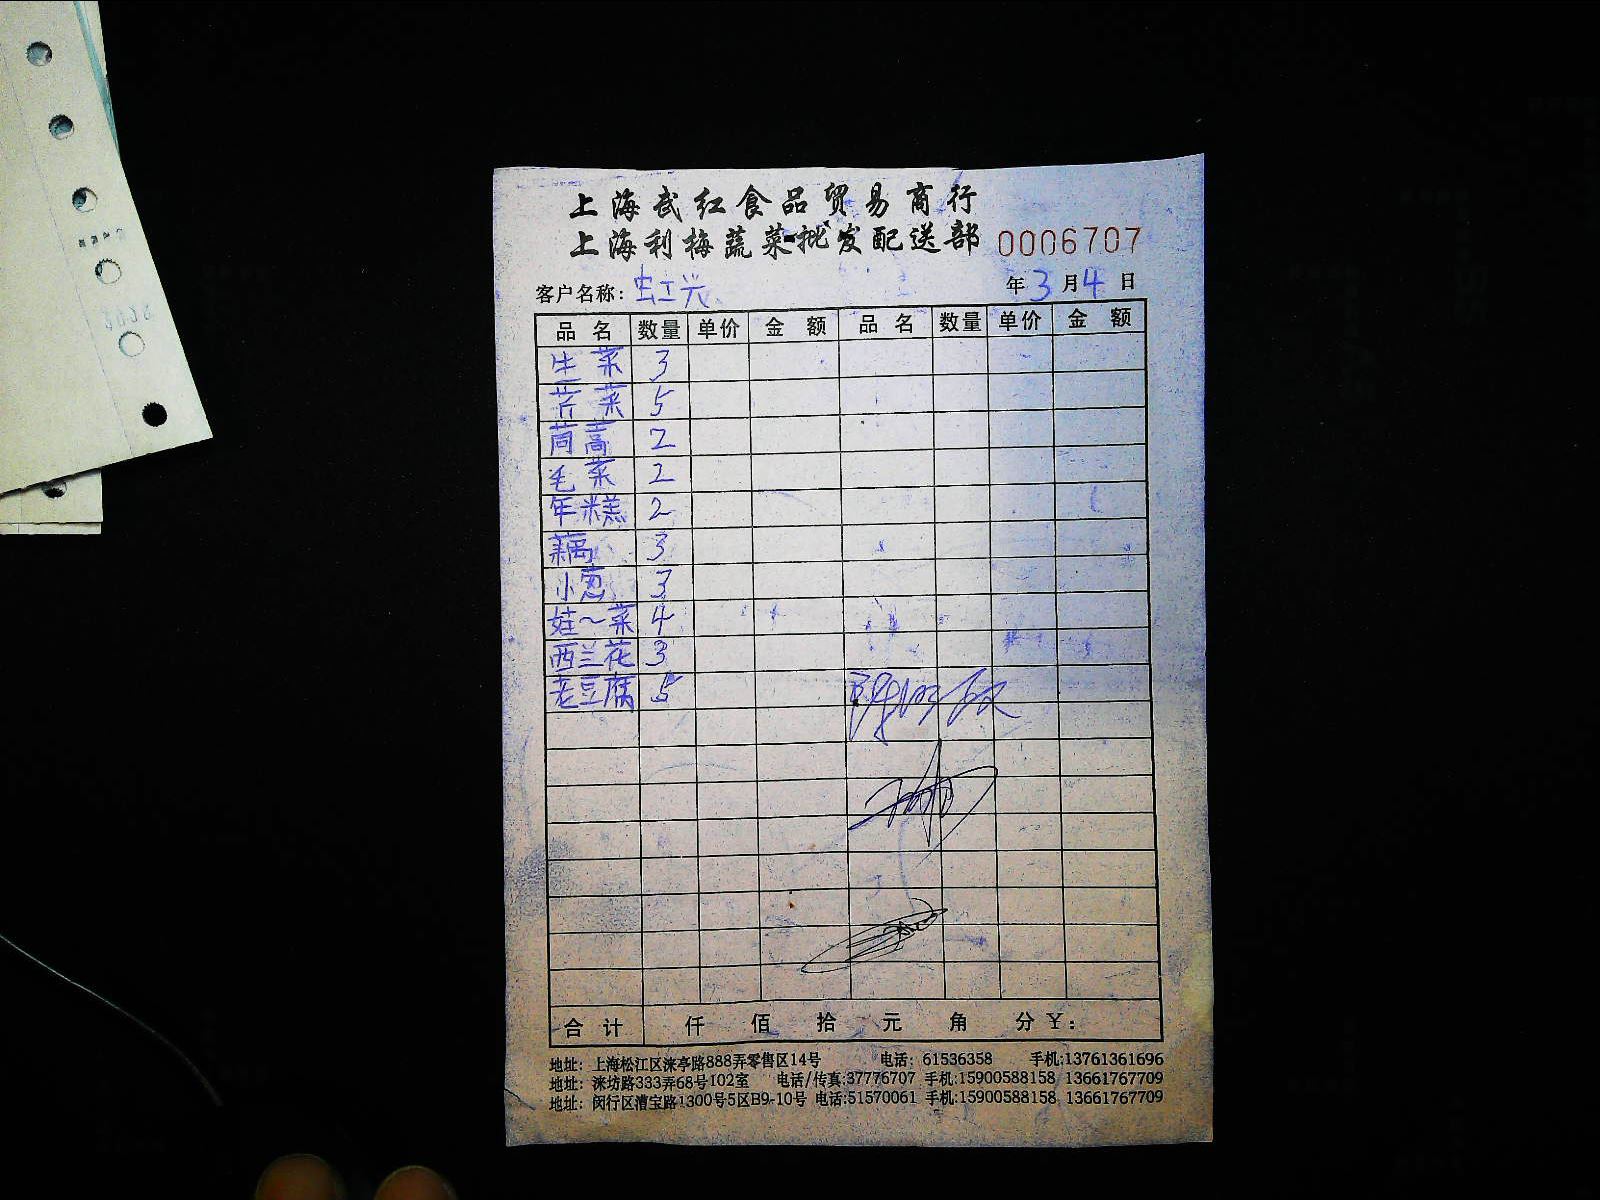 上海武红食品贸易商行
上海利梅蔬菜批发配送部 0006707
客户名称: 虹兴 年3月4日
品名 数量 单价 金额 品名 数量 单价 金额
生菜 3
芹菜 5
茼蒿 2
毛菜 2
年糕 2
藕 3
小葱 3
娃~菜 4
西兰花 3
老豆腐 5
合计 仟 佰 拾 元 角 分 ¥:
地址: 上海松江区涞亭路888弄零售区14号 电话: 61536358 手机:13761361696
地址: 涞坊路333弄68号102室 电话/传真:37776707 手机:15900588158 13661767709
地址: 闵行区漕宝路1300号5区B9-10号 电话:51570061 手机:15900588158 13661767709